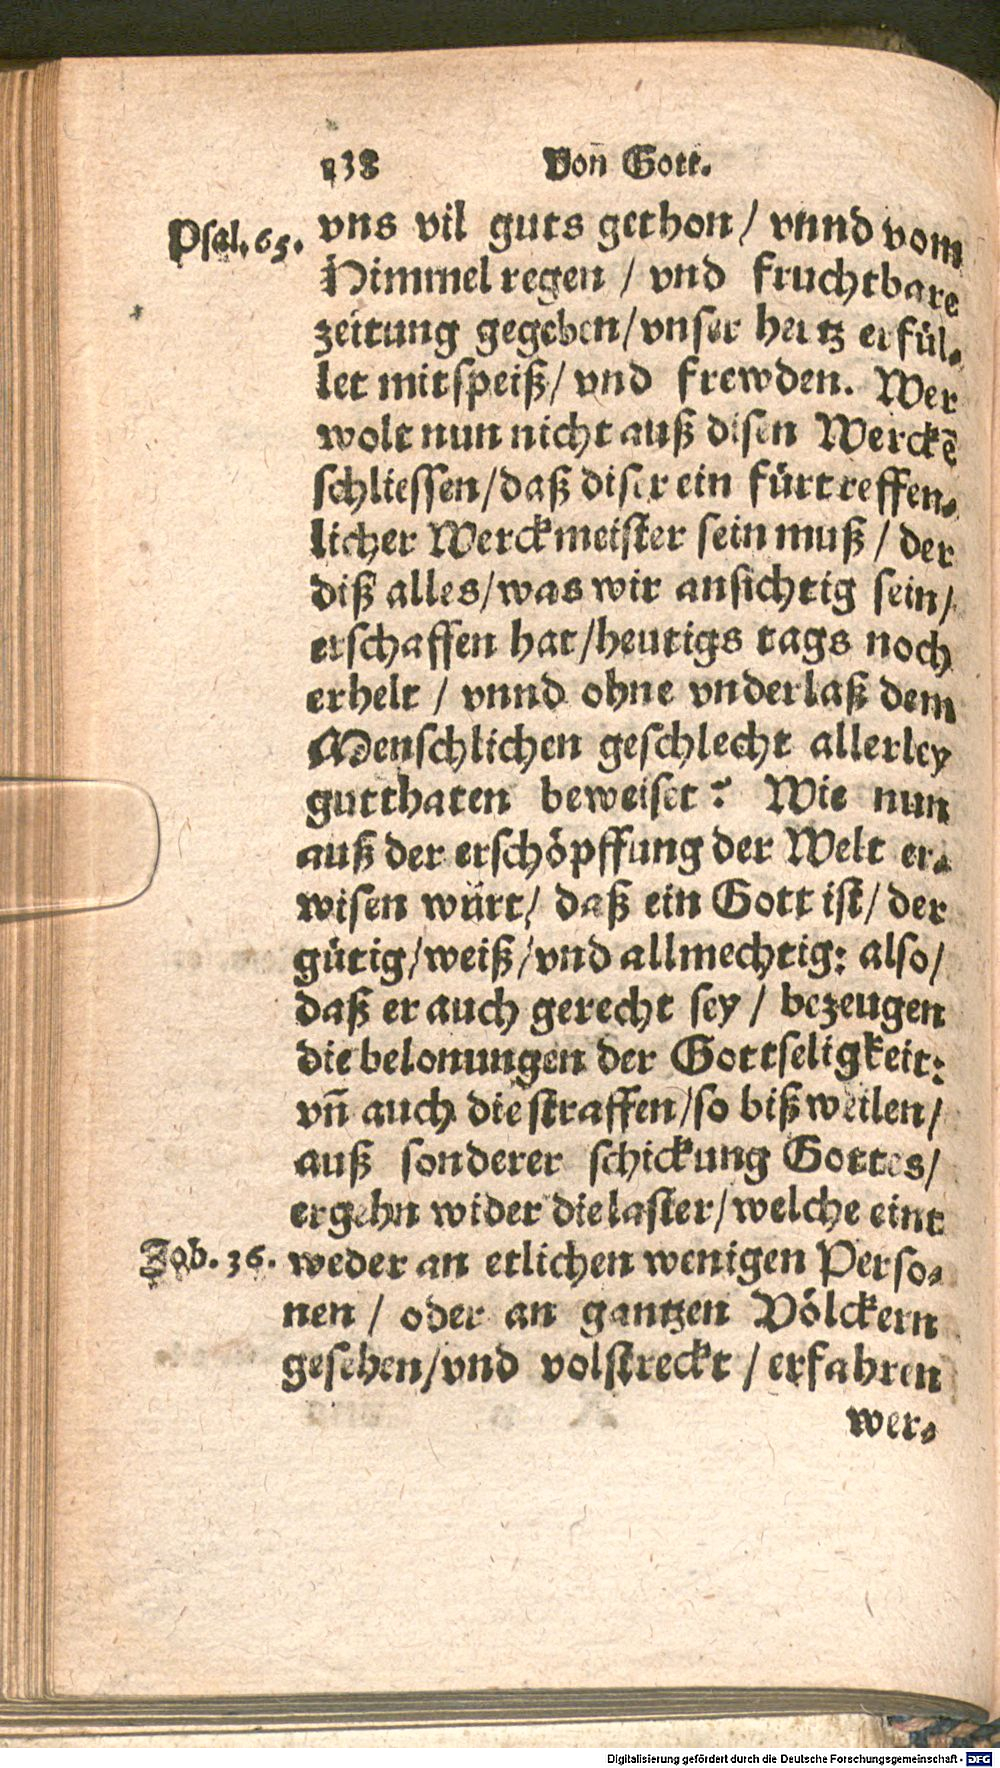 138 Von̄ Gott.
Psal. 65. vns vil guts gethon / vnnd vom
Himmel regen / vnd fruchtbare
zeitung gegeben / vnser hertz erfül-
let mit speiß / vnd frewden. Wer
wolt nun nicht auß disen Werckē
schliessen / daß diser ein fürtreffen-
licher Werckmeister sein muß / der
diß alles / was wir ansichtig sein /
erschaffen hat / heutigs tags noch
erhelt / vnnd ohne vnderlaß dem
Menschlichen geschlecht allerley
gutthaten beweiset? Wie nun
auß der erschöpffung der Welt er-
wisen würt / daß ein Gott ist / der
gütig / weiß / vnd allmechtig: also /
daß er auch gerecht sey / bezeugen
die belonungen der Gottseligkeit:
vn̄ auch die straffen / so bißweilen /
auß sonderer schickung Gottes /
ergehn wider die laster / welche eint
Job. 36. weder an etlichen wenigen Perso-
nen / oder an gantzen Völckern
gesehen / vnd volstreckt / erfahren
wer-
Digitalisierung gefördert durch die Deutsche Forschungsgemeinschaft - DFG